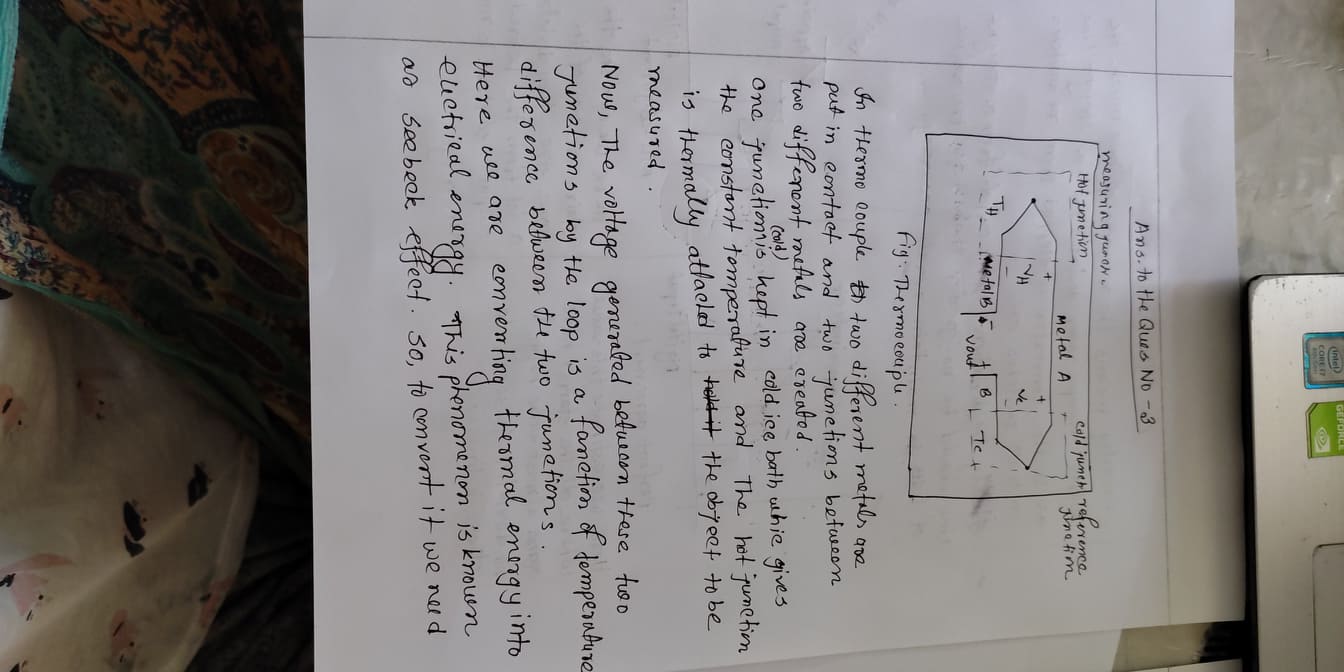 intel
CORE i7
8th Gen
GEFORCE
Ans. to the Ques No - 3
measuring
Hot junction
cold junct
reference
junction
Metal A
+
+
VH
Vc
-
-
TH
Metal B
Vout
B
Tc
Fig: Thermocouple.
In thermo couple two different metals are
put in contact and two junctions between
two different metals are created.
(cold)
one junction is kept in cold ice bath whic gives
the constant temperature and The hot junction
is thermally attached to the object to be
measured.
Now, The voltage generated between these two
junctions by the loop is a fanction of temperature
difference between the two junctions.
Here we are converting thermal energy into
electrical energy. This phenomenon is known
as seebeck effect. So, to convert it we need